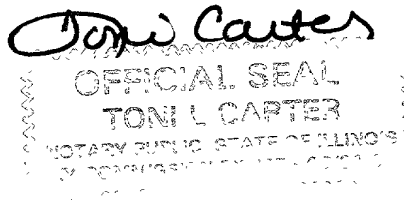 Toni Carter
OFFICIAL SEAL
TONI L CARTER
NOTARY PUBLIC STATE OF ILLINOIS
MY COMMISSION